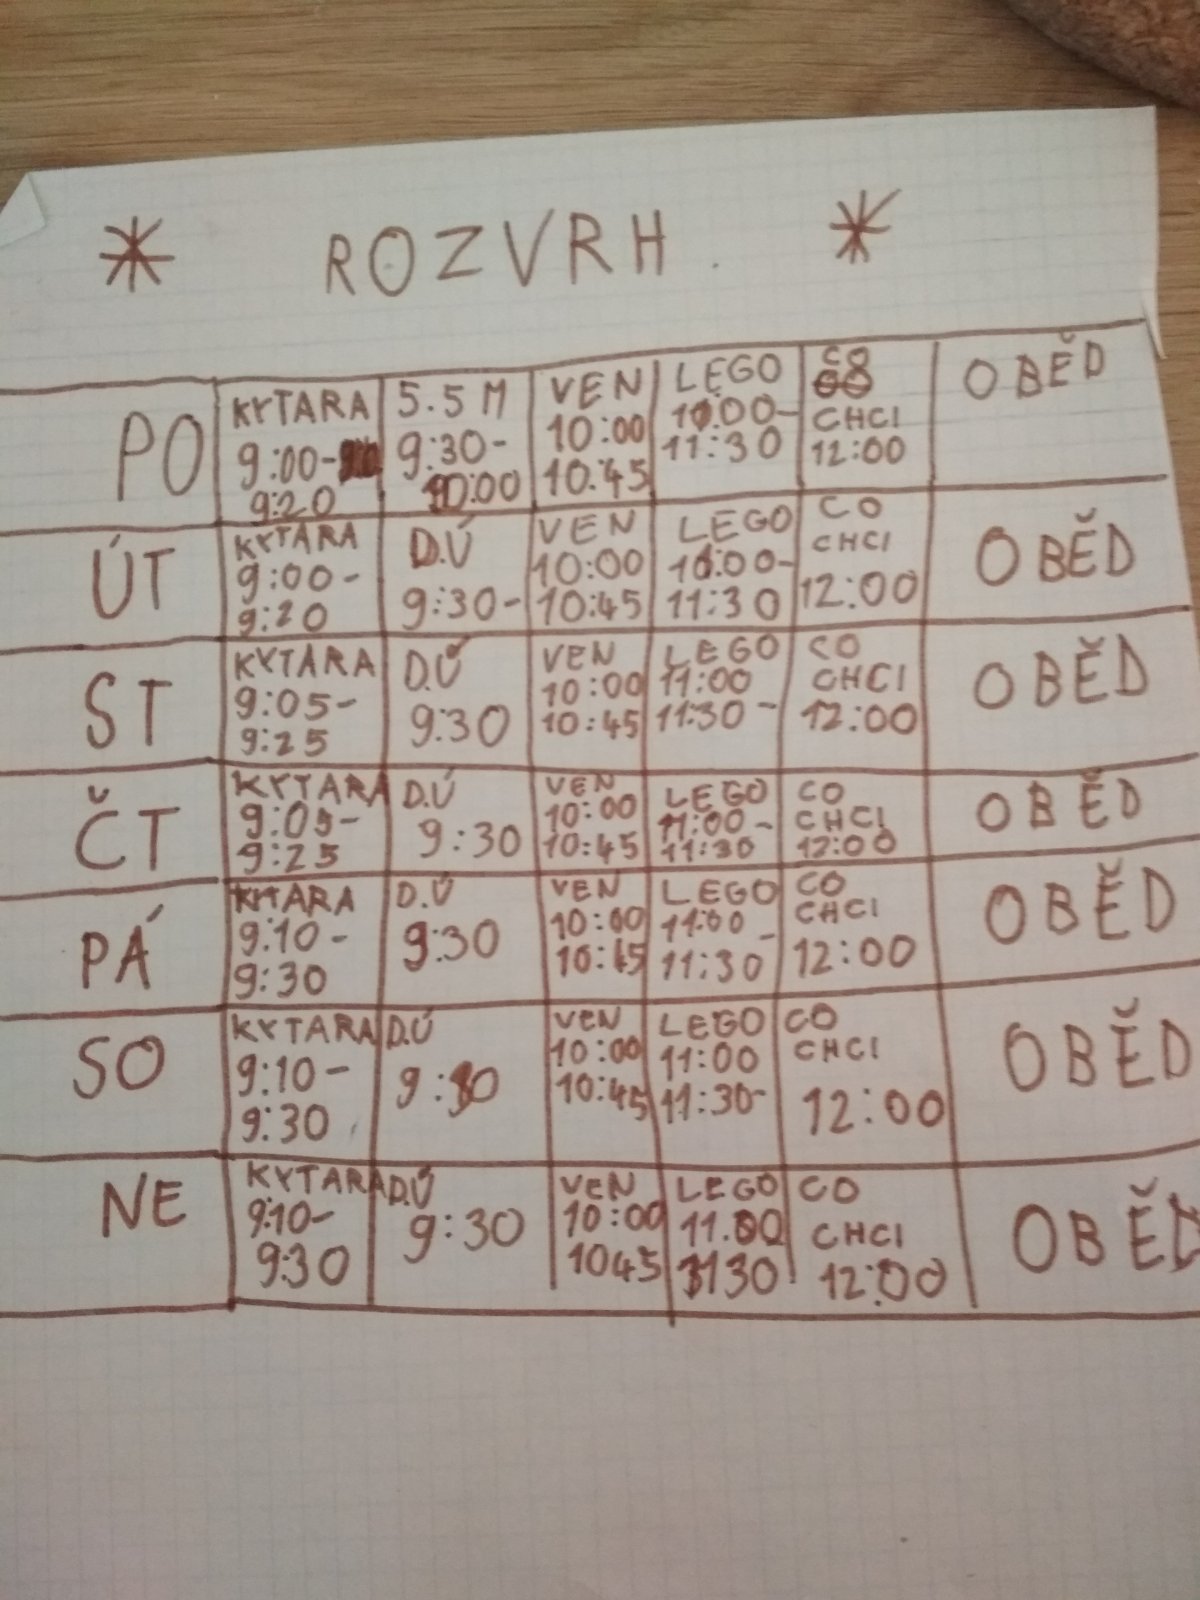 * ROZVRH *
PO
KYTARA
9:00-
9:20
5.5 M
9:30-
10:00
VEN
10:00
10:45
LEGO
11:30
CO
CHCI
12:00
OBĚD
ÚT
KYTARA
9:00-
9:20
D.Ú
9:30-
VEN
10:00
10:45
LEGO
11:30
CO
CHCI
12:00
OBĚD
ST
KYTARA
9:05-
9:25
D.Ú
9:30
VEN
10:00
10:45
LEGO
11:00
11:30-
CO
CHCI
12:00
OBĚD
ČT
KYTARA
9:05-
9:25
D.Ú
9:30
VEN
10:00
10:45
LEGO
11:00-
11:30
CO
CHCI
12:00
OBĚD
PÁ
KYTARA
9:10-
9:30
D.Ú
9:30
VEN
10:00
10:45
LEGO
11:00-
11:30
CO
CHCI
12:00
OBĚD
SO
KYTARA
9:10-
9:30
D.Ú
9:30
VEN
10:00
10:45
LEGO
11:00
11:30-
CO
CHCI
12:00
OBĚD
NE
KYTARA
9:10-
9:30
D.Ú
9:30
VEN
10:00
1045
LEGO
11.00
1130
CO
CHCI
12:00
OBĚD